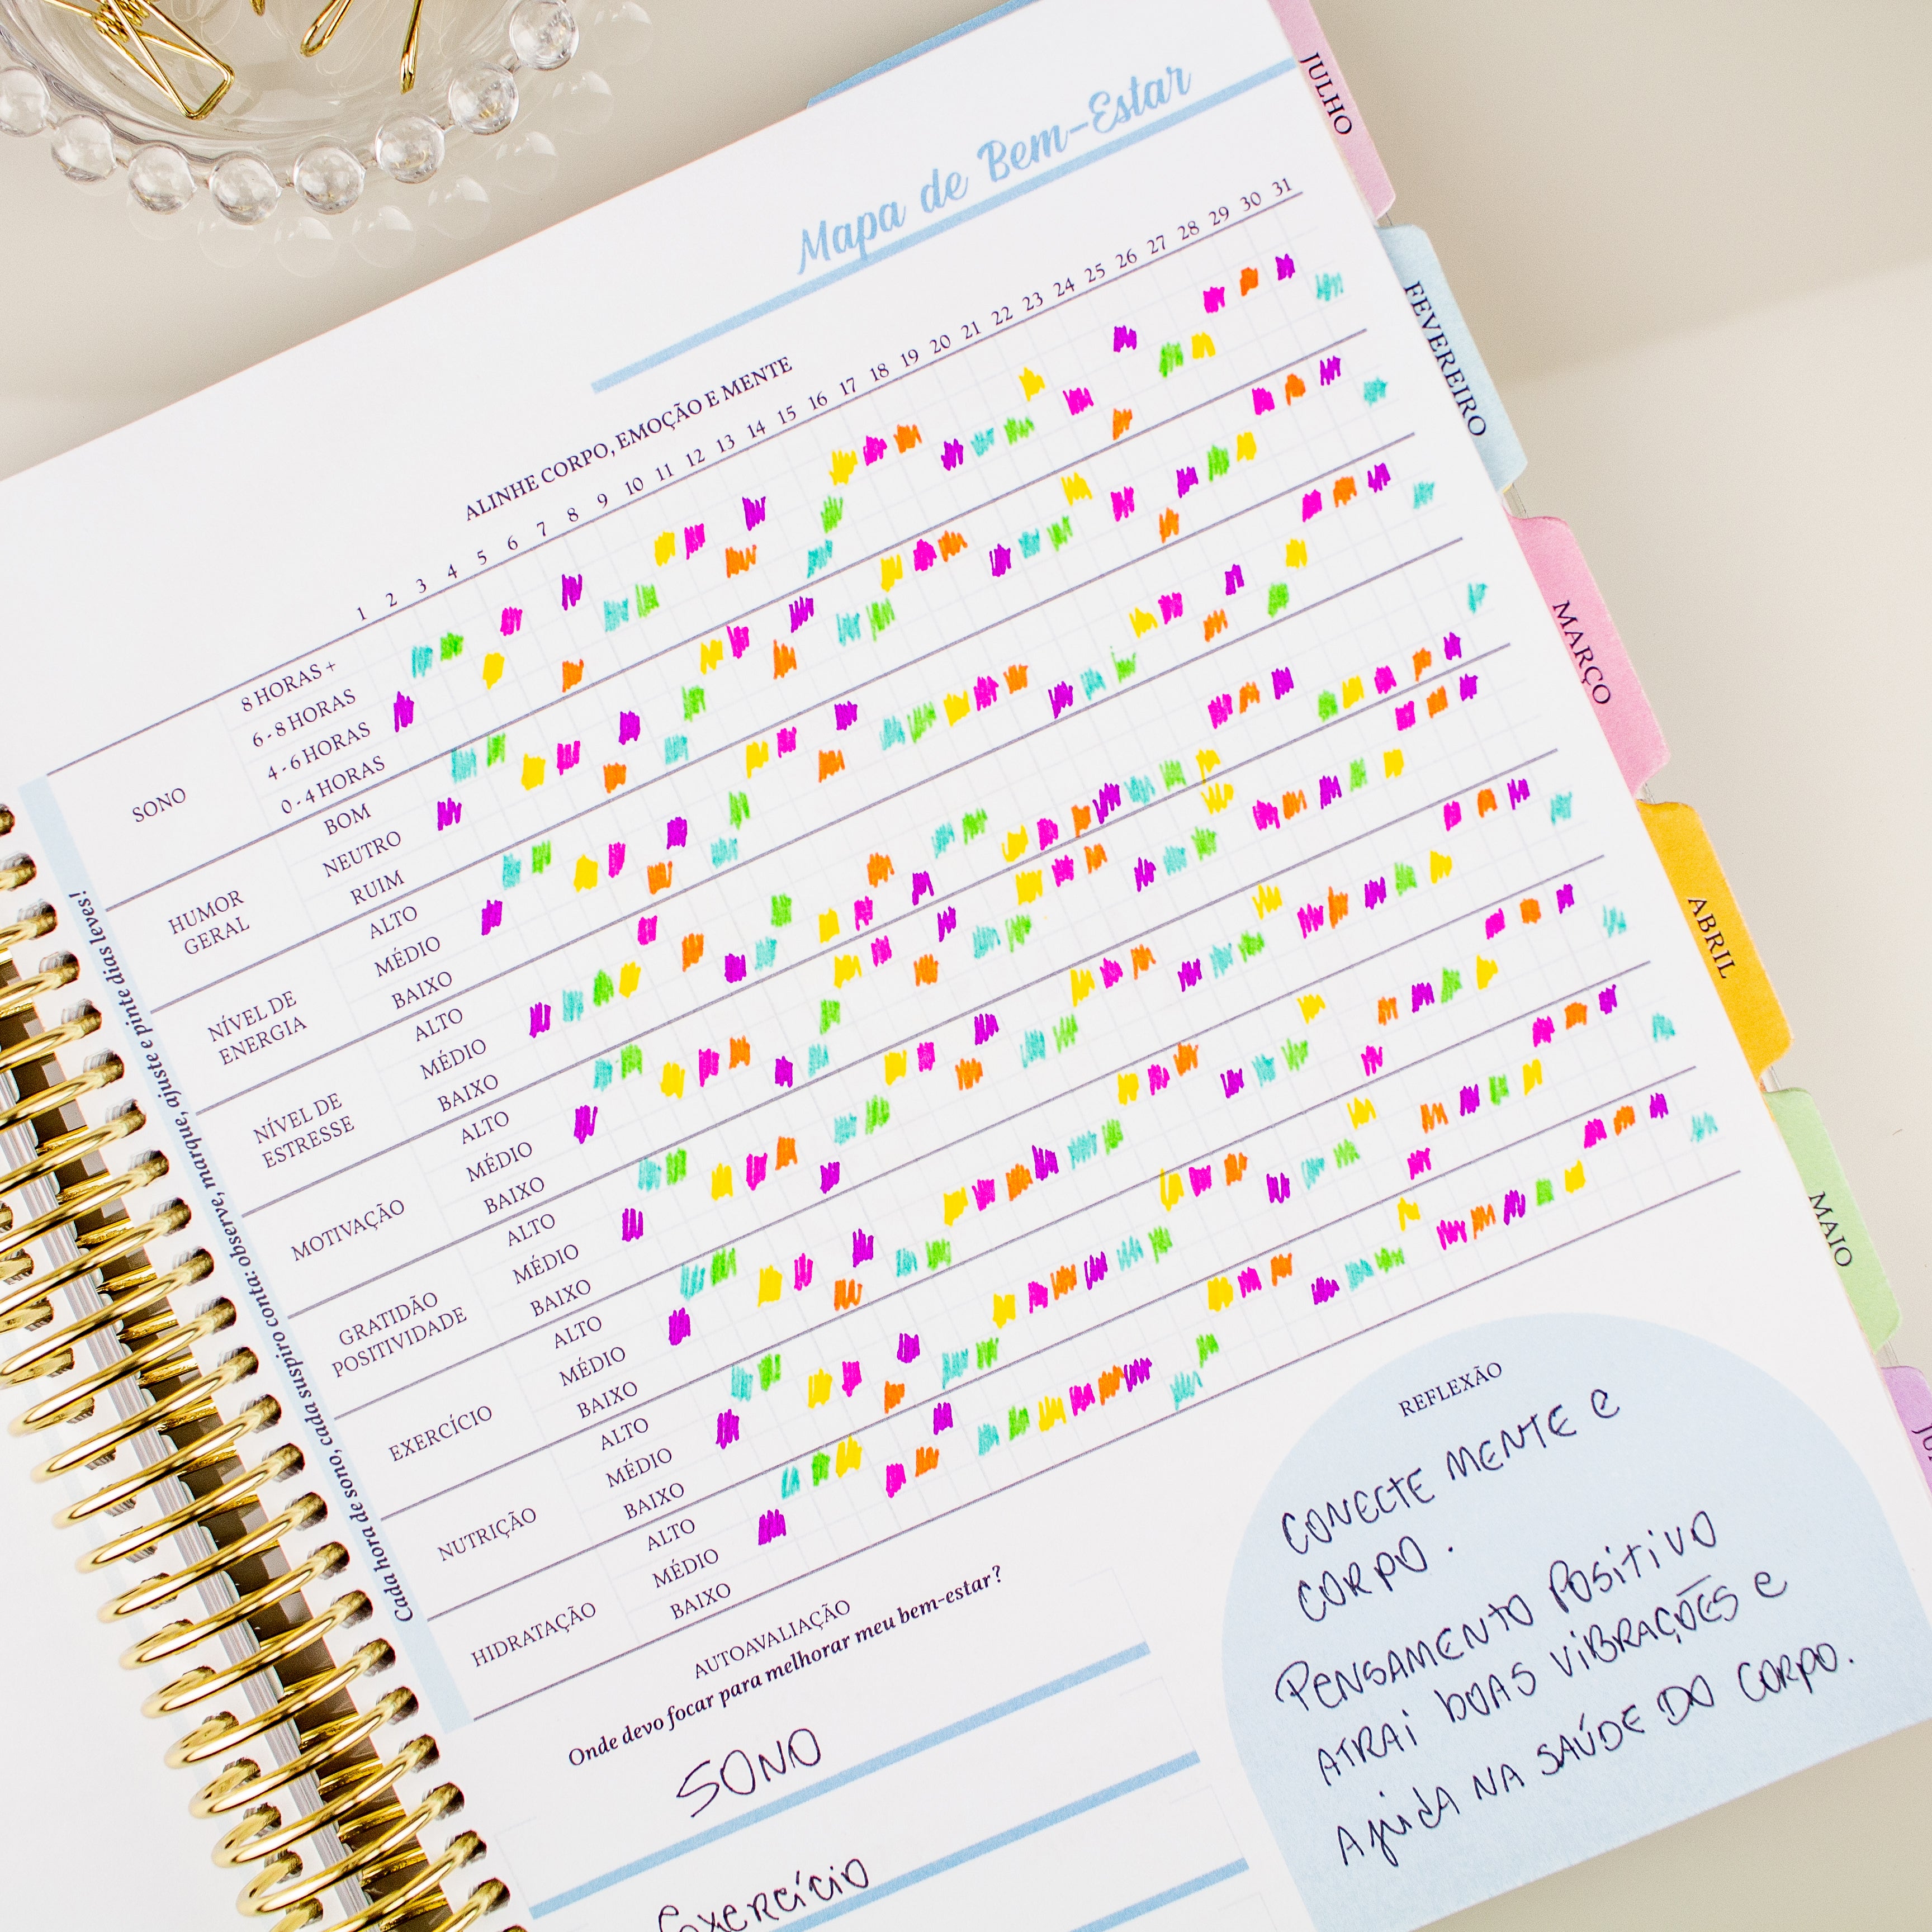 Mapa de Bem-Estar
ALINHE CORPO, EMOÇÃO E MENTE
1 2 3 4 5 6 7 8 9 10 11 12 13 14 15 16 17 18 19 20 21 22 23 24 25 26 27 28 29 30 31
SONO
8 HORAS +
6 - 8 HORAS
4 - 6 HORAS
0 - 4 HORAS
HUMOR
GERAL
BOM
NEUTRO
RUIM
NÍVEL DE
ENERGIA
ALTO
MÉDIO
BAIXO
NÍVEL DE
ESTRESSE
ALTO
MÉDIO
BAIXO
MOTIVAÇÃO
ALTO
MÉDIO
BAIXO
GRATIDÃO
POSITIVIDADE
ALTO
MÉDIO
BAIXO
EXERCÍCIO
ALTO
MÉDIO
BAIXO
NUTRIÇÃO
ALTO
MÉDIO
BAIXO
HIDRATAÇÃO
ALTO
MÉDIO
BAIXO
Cada hora de sono, cada suspiro conta: observe, marque, ajuste e pinte dias leves!
AUTOAVALIAÇÃO
Onde devo focar para melhorar meu bem-estar?
SONO
Exercício
REFLEXÃO
CONECTE MENTE E
CORPO.
PENSAMENTO POSITIVO
ATRAI BOAS VIBRAÇÕES E
AJUDA NA SAÚDE DO CORPO.
JULHO
FEVEREIRO
MARÇO
ABRIL
MAIO